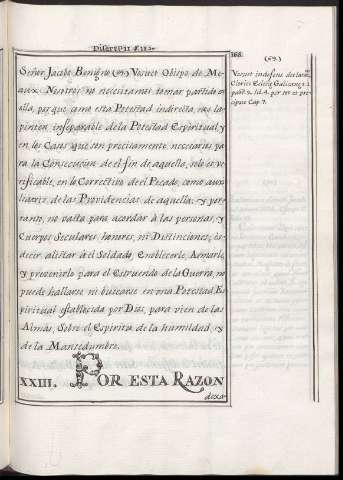 168.
Señor Jacobo Benigno (69.) Vosuet Obispo de Me-
aux. Nosotros no necesitamos tomar partido en
ella, por que como esta Potestad indirecta, es o-
pinion inseparable de la Potestad Espiritual, y
en los Casos que son precisamente necesarios pa
ra la Consecucion de el fin de aquella, solo es ve-
rificable, en lo Correctivo de el Pecado, como aux-
iliatriz, de las Providencias de aquella; y por
tanto, no vasta para acordar à las personas, y
Cuerpos Seculares, honores, ni Distinciones; es
decir alistar à el Soldado, Enoblecerle, Armarle,
y prevenirlo para el Estruendo de la Guerra, no
puede hallarse ni buscarse en una Potestad Es-
piritual establecida por Dios, para vien de las
Almas, Sobre el Espiritu de la humildad, y
de la Mansedumbre.
XXIII. POR ESTA RAZON
dexa
(69.)
Vosuet in defens. declarat.
Cleri Gallican. t. 1.
part. 2. lib. 4. per tot. et pre
cipue Cap. 7.